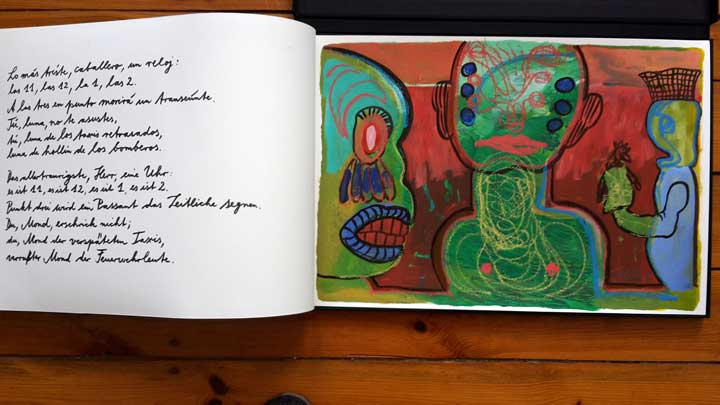 Lo más triste, caballero, un reloj:
las 11, las 12, la 1, las 2.
A las tres en punto morirá un transeúnte.
Tú, luna, no te asustes,
tú, luna de los taxis retrasados,
luna de hollín de los bomberos.
Das allertraurigste, Herr, eine Uhr:
es ist 11, es ist 12, es ist 1, es ist 2.
Punkt drei wird ein Passant das Zeitliche segnen.
Du, Mond, erschrick nicht;
du, Mond der verspäteten Taxis,
verrußter Mond der Feuerwehrleute.